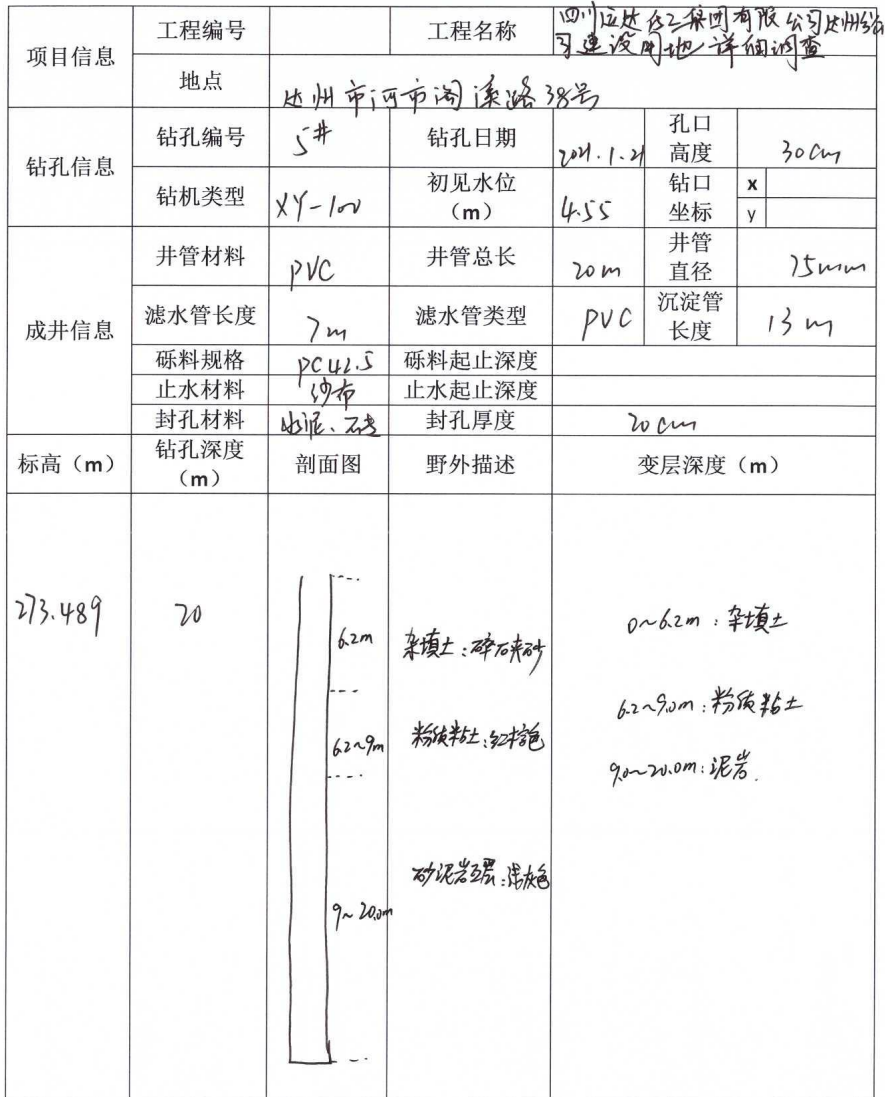 项目信息 工程编号 工程名称 四川 达化工集团有限公司达州分公
司建设用地详细调查
地点 达州市河市阁溪路38号
钻孔信息 钻孔编号 5# 钻孔日期 2021.1.21 孔口高度 30cm
钻机类型 XY-100 初见水位(m) 4.55 钻口坐标 x
y
成井信息 井管材料 PVC 井管总长 20m 井管直径 75mm
滤水管长度 7m 滤水管类型 PVC 沉淀管长度 13m
砾料规格 PC42.5 砾料起止深度
止水材料 纱布 止水起止深度
封孔材料 水泥、 封孔厚度 20cm
标高(m) 钻孔深度(m) 剖面图 野外描述 变层深度(m)
273.489 20
6.2m 杂填土:碎石夹砂 0~6.2m:杂填土
6.2~9m 粉质粘土:红棕色 6.2~9.0m:粉质粘土
9.0~20.0m:泥岩.
砂泥岩互层:浅灰色
9~20.0m